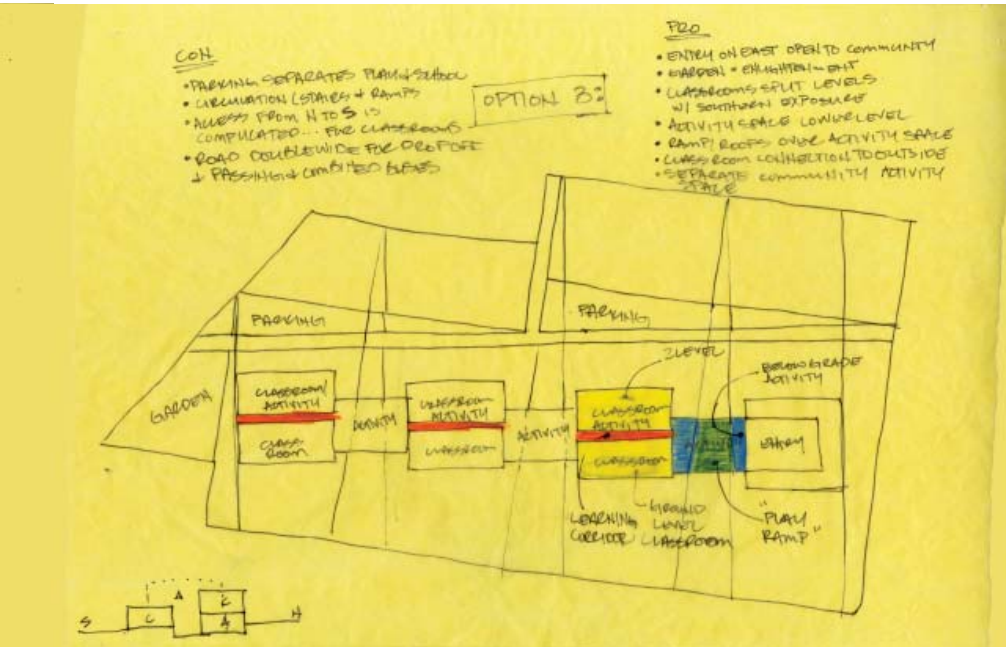 CON
• PARKING SEPARATES PLAY & SCHOOL
• CIRCULATION (STAIRS & RAMPS
• ACCESS FROM N TO S IS
COMPLICATED... FOR CLASSROOMS
• ROAD DOUBLEWIDE FOR DROP OFF
& PASSING & COMBINED BUSES
OPTION B:
PRO
• ENTRY ON EAST OPEN TO COMMUNITY
• GARDEN = ENLIGHTENMENT
• CLASSROOMS SPLIT LEVELS
W/ SOUTHERN EXPOSURE
• ACTIVITY SPACE LOWER LEVEL
• RAMP/ROOFS OVER ACTIVITY SPACE
• CLASSROOM CONNECTION TO OUTSIDE
• SEPARATE COMMUNITY ACTIVITY
SPACE
PARKING
PARKING
2 LEVEL
BELOW GRADE
ACTIVITY
GARDEN
CLASSROOM/
ACTIVITY
CLASS-
ROOM
ACTIVITY
CLASSROOM
ACTIVITY
CLASSROOM
ACTIVITY
CLASSROOM
ACTIVITY
CLASSROOM
ENTRY
LEARNING
CORRIDOR
GROUND
LEVEL
CLASSROOM
"PLAY
RAMP"
S
C
A
C
A
N